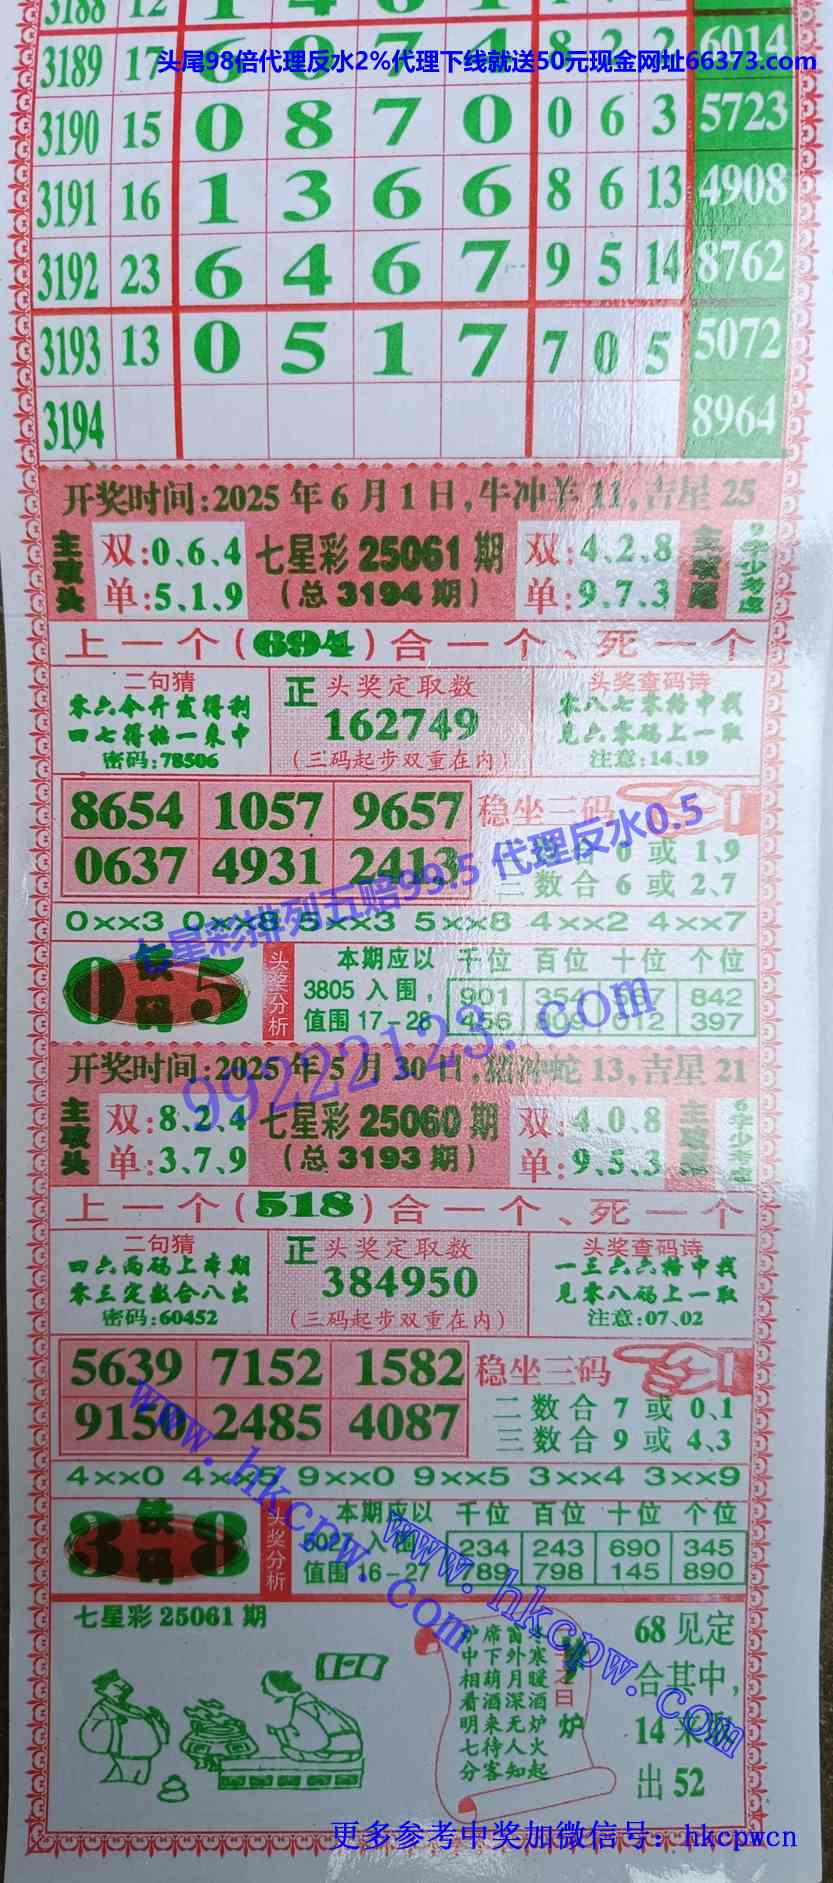 3188 12
3189 17 6 0 7 4 8 2 2 6014
头尾98倍代理反水2%代理下线就送50元现金网址66373.com
3190 15 0 8 7 0 0 6 3 5723
3191 16 1 3 6 6 8 6 13 4908
3192 23 6 4 6 7 9 5 14 8762
3193 13 0 5 1 7 7 0 5 5072
3194 8964
开奖时间:2025年6月1日,牛冲羊11,吉星25
主攻头 双:0、6、4 七星彩25061期 双:4、2、8 主攻尾 9字少考虑
单:5、1、9 (总3194期) 单:9、7、3
上一个(694)合一个、死一个
二句猜 正 头奖定取数 头奖查码诗
零六今开发得利 162749 零八七零格中找
四七得格一来中 (三码起步双重在内) 见六零码上一取
密码:78506 注意:14、19
8654 1057 9657 稳坐三码
0637 4931 2413 二数合0或1、9
三数合6或2、7
七星彩排列五赔99.5 代理反水0.5
0××3 0××8 5××3 5××8 4××2 4××7
0 铁码 5 头奖分析 本期应以 千位 百位 十位 个位
3805入围, 901 354 567 842
值围17-28 456 809 012 397
99222123.com
开奖时间:2025年5月30日,猪冲蛇13,吉星21
主攻头 双:8、2、4 七星彩25060期 双:4、0、8 主攻尾 6字少考虑
单:3、7、9 (总3193期) 单:9、5、3
上一个(518)合一个、死一个
二句猜 正 头奖定取数 头奖查码诗
四六两码上本期 384950 一三六六格中找
零三定数合八出 (三码起步双重在内) 见零八码上一取
密码:60452 注意:07、02
5639 7152 1582 稳坐三码
9150 2485 4087 二数合7或0、1
三数合9或4、3
4××0 4××9 9××0 9××5 3××4 3××9
www.hkcpw.com
3 铁码 8 头奖分析 本期应以 千位 百位 十位 个位
5027入围 234 243 690 345
值围16-27 789 798 145 890
www.hkcpw.com
七星彩25061期
冬寒暖酒炉火起
窗外月深无人知
席下葫酒来待客
炉中相看明七分
之曰 炉
68见定
合其中,
14来取
出52
更多参考中奖加微信号:hkcpwcn